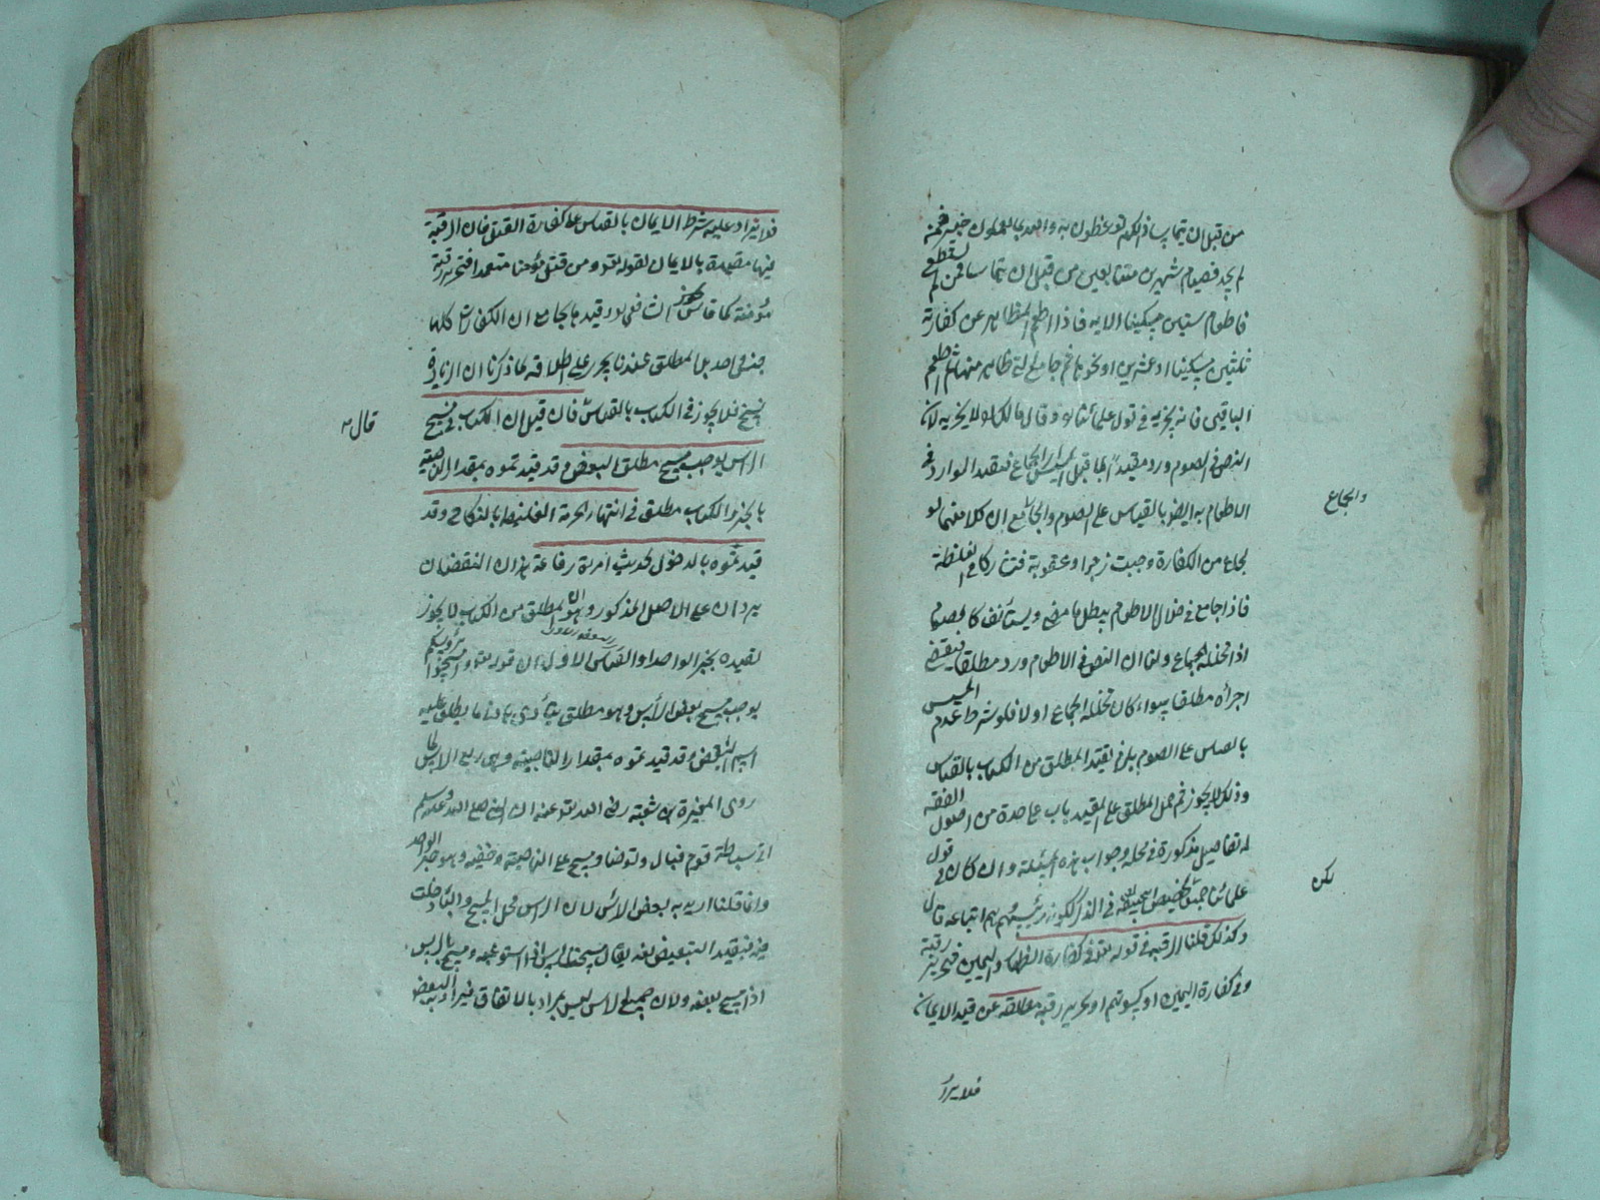 من قبل ان يتماسا ذلكم توعظون به والله بما تعملون خبير فمن
لم يجد فصيام شهرين متتابعين من قبل ان يتماسا فمن لم يستطع
فاطعام ستين مسكينا الاية فاذا اطعم المظاهر عن كفارته
ثلثين مسكينا او عشرين او نحوها ثم جامع التي ظاهر منها ثم اطعم
الباقين فانه يجزيه في قول علمائنا وقال مالك لا يجزيه لان
النص في الصوم ورد مقيدا بما قبل المسيس الجماع فتقيد الوارد في
والجماع
الاطعام به ايضا بالقياس على الصوم والجامع ان كلا منهما لو
بجماع من الكفارة وجبت زجرا وعقوبة في الغلظة
فاذا جامع في خلال الاطعام يبطل ما مضى ويستانف كالصوم
اذا تخلله الجماع ولنا ان النص في الاطعام ورد مطلقا فيقتضي
اجزاءه مطلقا سواء كان تخلله الجماع او لا فلو شرط عدم المسيس
بالقياس على الصوم يلزم تقييد المطلق من الكتاب بالقياس
وذلك لا يجوز ثم حمل المطلق على المقيد باب على حدة من اصول الفقه
له تفاصيل مذكورة في محله وجواب هذه المسئلة وان كان في قول
لكن
علمائنا في الذكر لكونه رئيسهم وهم اتباعه قال
وكذلك قلنا الرقبة في قوله تعالى في كفارة الظهار واليمين فتحرير رقبة
وفي كفارة اليمين او كسوتهم او تحرير رقبة مطلقة عن قيد الايمان
فلا يزاد
فلا يزاد عليه شرط الايمان بالقياس على كفارة القتل فان الرقبة
فيها مقيدة بالايمان لقوله تعالى ومن قتل مؤمنا متعمدا فتحرير رقبة
مؤمنة كما قاس الشافعي وقيد بجامع ان الكفارات كلها
جنس واحد بل المطلق عندنا يجري على اطلاقه لما ذكرنا ان الزيادة
نسخ فلا يجوز في الكتاب بالقياس فان قيل ان الكتاب في مسح
قال
الراس يوجب مسح مطلق البعض وقد قيدتموه بمقدار الناصية
بالخبر والكتاب مطلق في انتهاء الحرمة الغليظة بالنكاح وقد
قيدتموه بالدخول بحديث امراة رفاعة هذان النقضان
يردان على الاصل المذكور وهو ان المطلق من الكتاب لا يجوز
تقييده بخبر الواحد او القياس الاول ان قوله تعالى وامسحوا برؤسكم
يوجب مسح بعض الراس وهو مطلق يتأدى بما يطلق عليه
اسم البعض وقد قيدتموه بمقدار الناصية وهي ربع الراس لما
روى المغيرة بن شعبة رضي الله تعالى عنه ان النبي صلى الله عليه وسلم
اتى سباطة قوم فبال وتوضا ومسح على الناصية وخفيه وهو خبر الواحد
وانما قلنا اريد به بعض الراس لان الراس محل المسح والباء دخلت
فيه فتفيد التبعيض لغة يقال مسحت الراس اذا استوعبه ومسح بالراس
اذا مسح بعضه ولان جميع الراس ليس بمراد بالاتفاق فيراد به البعض